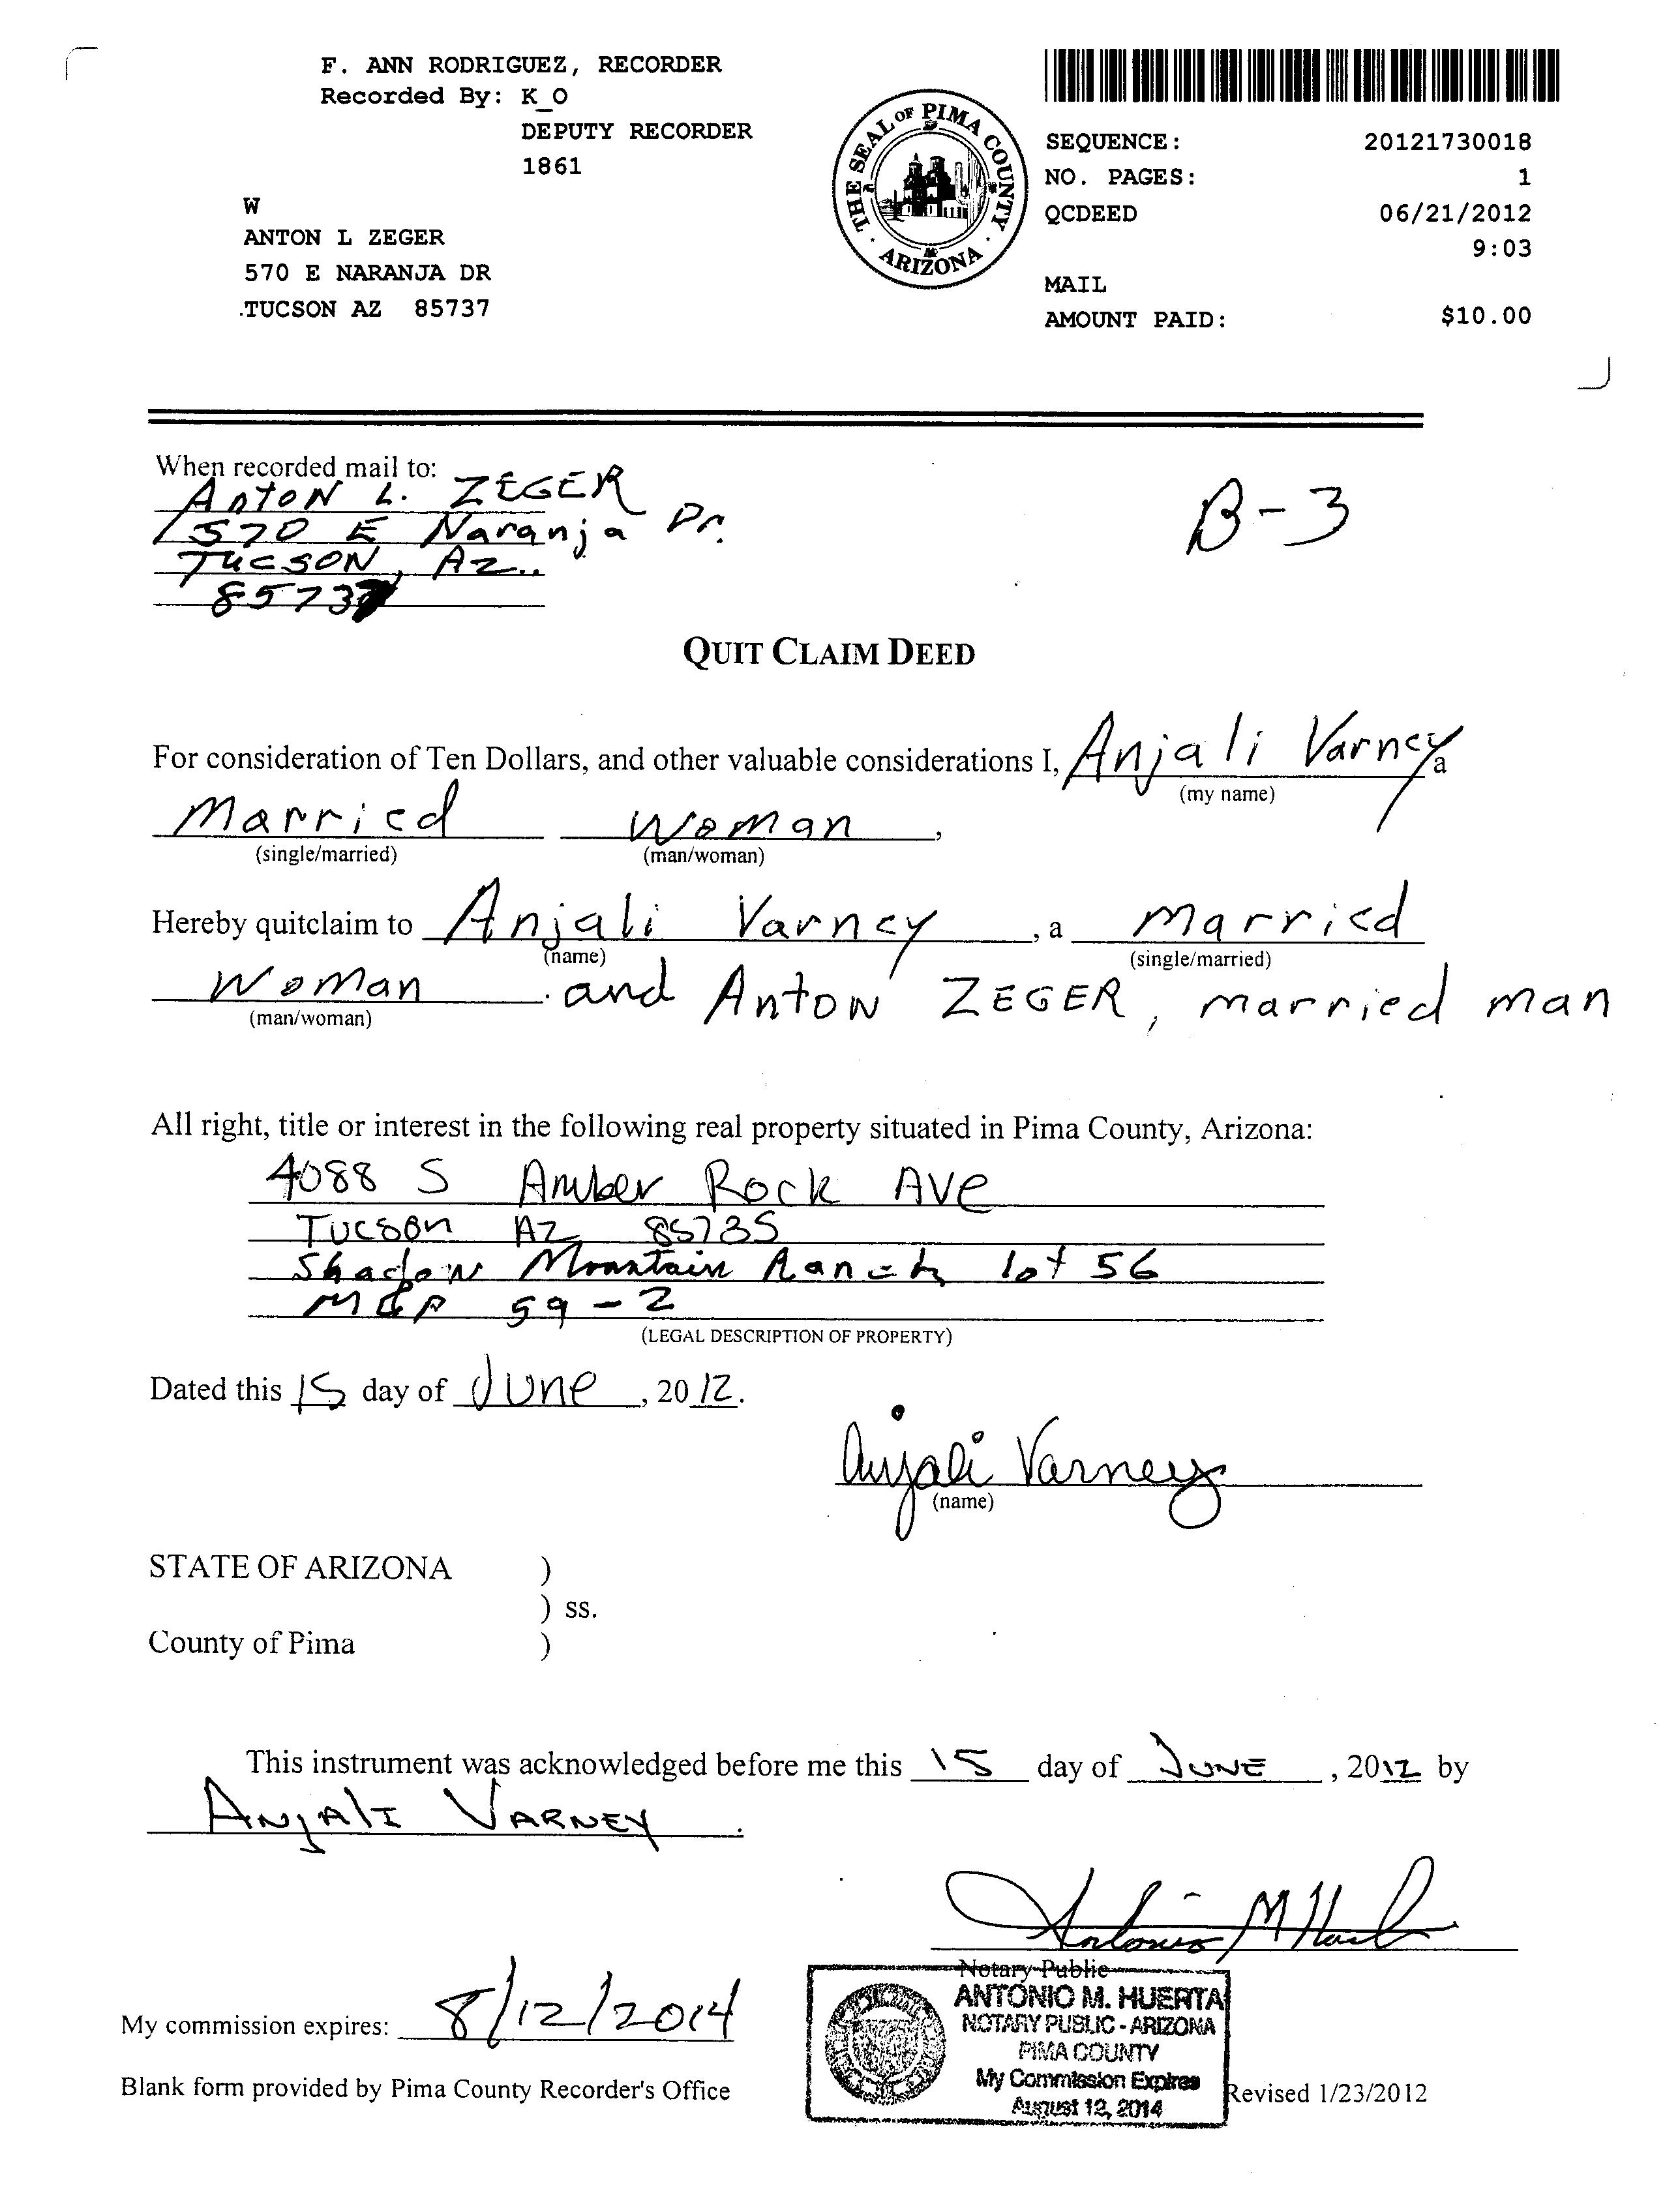 F. ANN RODRIGUEZ, RECORDER
Recorded By: K_O
DEPUTY RECORDER
1861
W
ANTON L ZEGER
570 E NARANJA DR
.TUCSON AZ 85737
THE SEAL OF PIMA COUNTY
· ARIZONA ·
SEQUENCE: 20121730018
NO. PAGES: 1
QCDEED 06/21/2012
9:03
MAIL
AMOUNT PAID: $10.00
When recorded mail to:
ANTON L. ZEGER
570 E Naranja Dr.
TUCSON, AZ..
85737
B-3
QUIT CLAIM DEED
For consideration of Ten Dollars, and other valuable considerations I, Anjali Varney a
(my name)
Married Woman,
(single/married) (man/woman)
Hereby quitclaim to Anjali Varney, a Married
(name) (single/married)
Woman. and ANTON ZEGER, married man
(man/woman)
All right, title or interest in the following real property situated in Pima County, Arizona:
4088 S Amber Rock Ave
Tucson AZ 85735
Shadow Mountain Ranch lot 56
M&P 59-2
(LEGAL DESCRIPTION OF PROPERTY)
Dated this 15 day of June, 2012.
Anjali Varney
(name)
STATE OF ARIZONA )
) ss.
County of Pima )
This instrument was acknowledged before me this 15 day of JUNE, 2012 by
ANJALI VARNEY.
Antonio M Huerta
Notary Public
ANTONIO M. HUERTA
NOTARY PUBLIC - ARIZONA
PIMA COUNTY
My Commission Expires
August 12, 2014
My commission expires: 8/12/2014
Blank form provided by Pima County Recorder's Office
Revised 1/23/2012